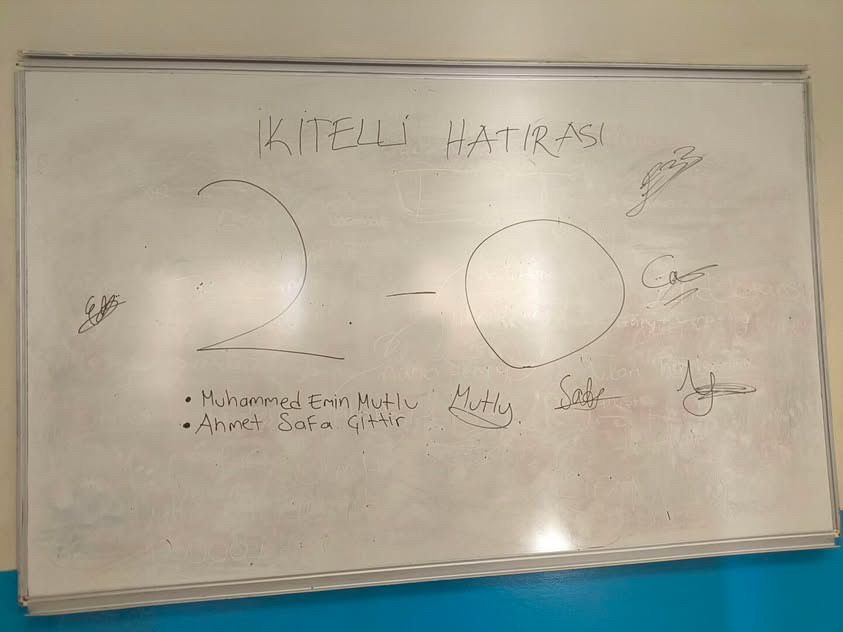 İKİTELLİ HATIRASI
2 - 0
• Muhammed Emin Mutlu
• Ahmet Safa Çittir
Mutlu
Safa